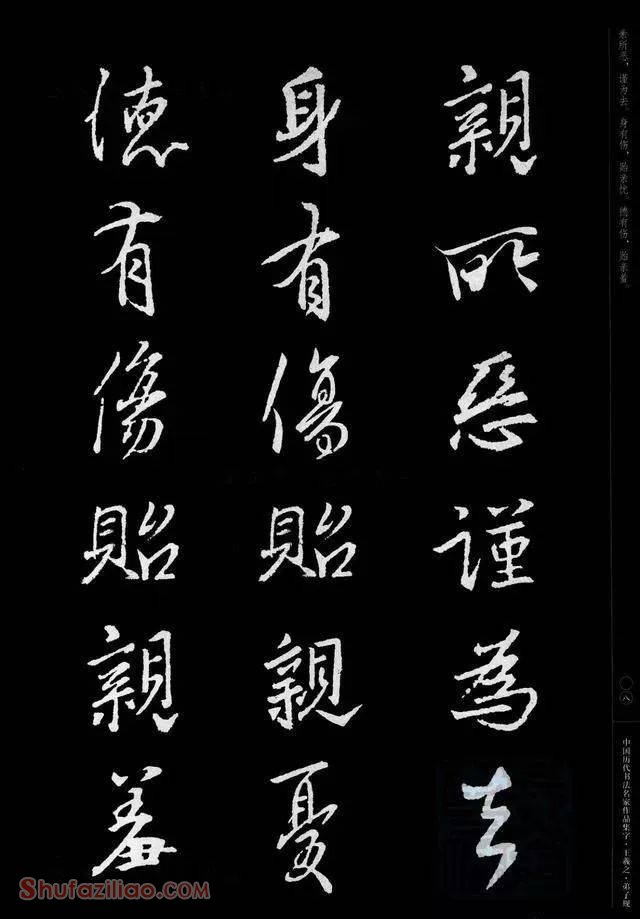 亲所恶，谨为去。身有伤，贻亲忧。德有伤，贻亲羞。
親所惡謹為去
身有傷貽親憂
德有傷貽親羞
〇八
中国历代书法名家作品集字·王羲之·弟子规
Shufaziliao.com